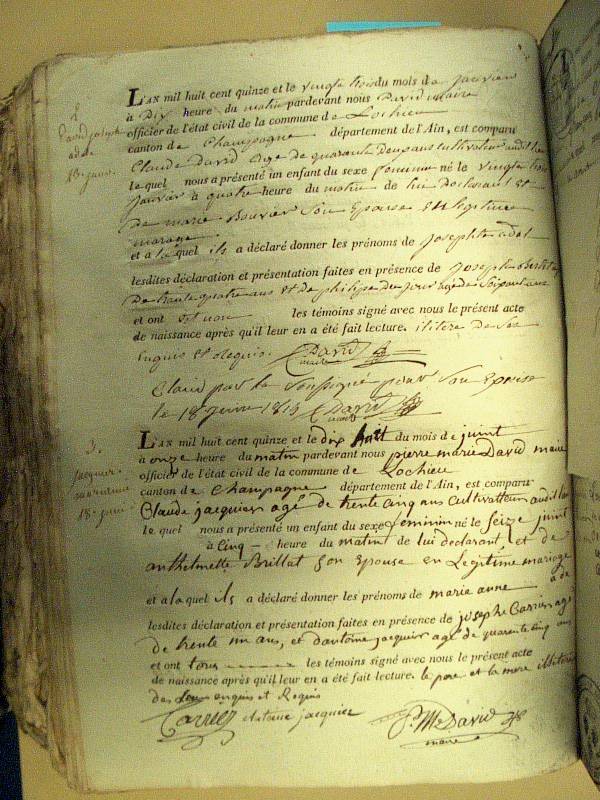 L'AN mil huit cent quinze et le vingt trois du mois de janvier
à Dix heure du matin pardevant nous David maire
officier de l'état civil de la commune de Lochieu
canton de Champagne département de l'Ain, est comparu
Claude David age de quarante deux ans cultivateur audit lieu
le quel nous a présenté un enfant du sexe feminin né le vingt trois
janvier à quatre heure du matin de lui declarant et
De marie Bouvier son Epouse en legitime
mariage
et a la quel ils a déclaré donner les prénoms de Josephte adel
lesdites déclaration et présentation faites en présence de Joseph
De trente quatre ans et de philipe Du jour age de soixante ans
et ont les témoins signé avec nous le présent acte
de naissance après qu'il leur en a été fait lecture.
Enquis et Requis. David
maire
le 18 1815 David
maire
3.
jacquier
18 juin
L'AN mil huit cent quinze et le dix huit du mois de juint
à onze heure du matin pardevant nous pierre marie David maire
officier de l'état civil de la commune de Lochieu
canton de Champagne département de l'Ain, est comparu
Claude jacquier agé de trente cinq ans cultivatteur audit lieu
le quel nous a présenté un enfant du sexe feminin né le seize juint
à cinq heure du matin de lui declarant et de
anthelmette Brillat son Epouse en Legitime mariage
et a la quel ils a déclaré donner les prénoms de marie anne
lesdites déclaration et présentation faites en présence de josephe Carrier agé
de trente un ans, et d'antoine jacquier agé de quarente cinq ans
et ont tous les témoins signé avec nous le présent acte
de naissance après qu'il leur en a été fait lecture. le pere et la mere illiterés
de enquis et Requis
Carrier Antoine jacquier P. M. David
maire